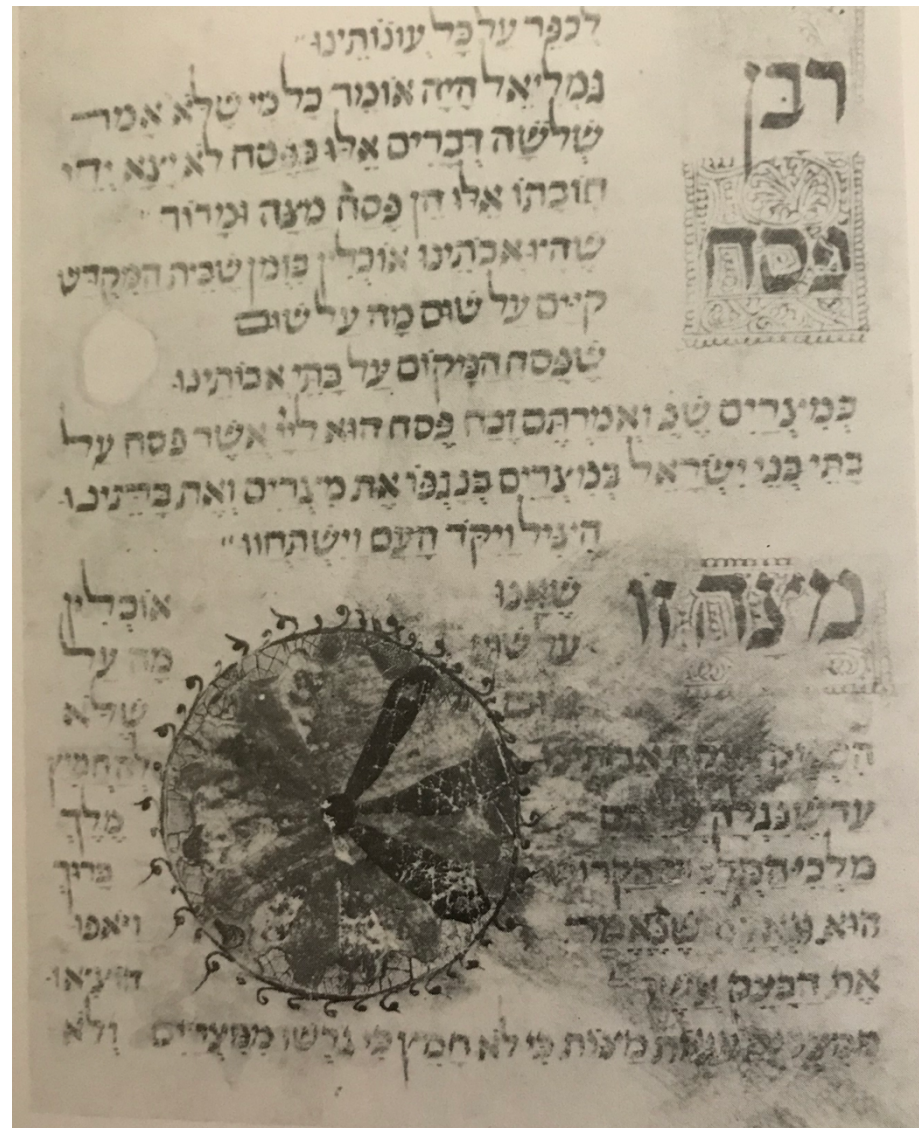 לכפר על כל עונותינו
רבן גמליאל היה אומר כל מי שלא אמר
שלשה דברים אלו בפסח לא יצא ידי
חובתו אלו הן פסח מצה ומרור
פסח שהיו אבתינו אוכלין בזמן שבית המקדש
קיים על שום מה על שום
שפסח המקום על בתי אבותינו
במצרים שנ ואמרתם זבח פסח הוא ליי אשר פסח על
בתי בני ישראל במצרים בנגפו את מצרים ואת בתינו
היציל ויקד העם וישתחוו
מצה זו שאנו אוכלין
על שום מה על
שום שלא
אבותינו להחמיץ
עד שנגלה מלך
מלכי המלכים ברוך
הוא שנאמר ויאפו
את הבצק אשר הוציאו
ממצרים עגות מצות כי לא חמץ כי גרשו ממצרים ולא